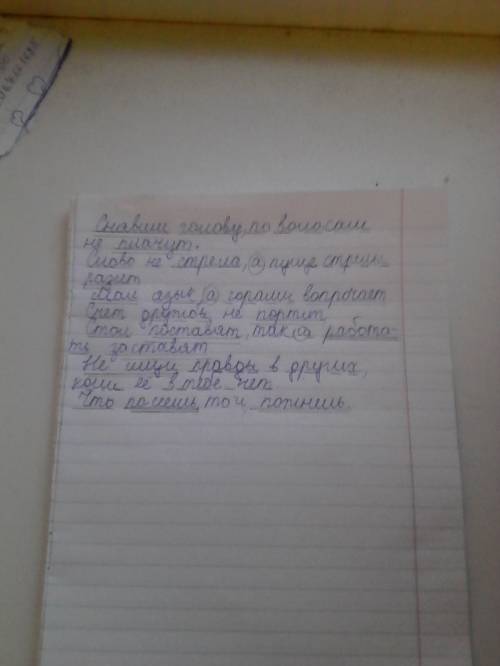 Снявши голову, по волосам
не плачут.
Слово не стрела, а пуще стрелы
разит
Мал язык а горами ворочает
Счет дружбы не портит
Стол поставят, так и работа-
ть заставят
Не ищи правды в других,
коли её в тебе нет
Что посеешь, то и пожнешь.